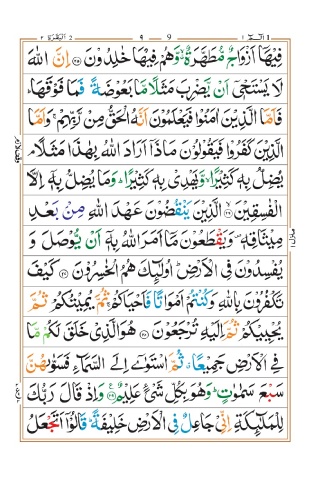 البقرة ٢ ٩ 9 الٓمّٓ ١
فِيْهَاۤ اَزْوَاجٌ مُّطَهَّرَةٌ وَّهُمْ فِيْهَا خٰلِدُوْنَ ﴿٢٥﴾ اِنَّ اللّٰهَ
لَا يَسْتَحْيٖۤ اَنْ يَّضْرِبَ مَثَلًا مَّا بَعُوْضَةً فَمَا فَوْقَهَا
فَاَمَّا الَّذِيْنَ اٰمَنُوْا فَيَعْلَمُوْنَ اَنَّهُ الْحَقُّ مِنْ رَّبِّهِمْ وَاَمَّا
الَّذِيْنَ كَفَرُوْا فَيَقُوْلُوْنَ مَاذَاۤ اَرَادَ اللّٰهُ بِهٰذَا مَثَلًا
يُضِلُّ بِهٖ كَثِيْرًا وَّيَهْدِيْ بِهٖ كَثِيْرًا وَمَا يُضِلُّ بِهٖۤ اِلَّا
الْفٰسِقِيْنَ ﴿٢٦﴾ الَّذِيْنَ يَنْقُضُوْنَ عَهْدَ اللّٰهِ مِنْ بَعْدِ
مِيْثَاقِهٖ وَيَقْطَعُوْنَ مَاۤ اَمَرَ اللّٰهُ بِهٖۤ اَنْ يُّوْصَلَ وَ
يُفْسِدُوْنَ فِي الْاَرْضِ اُولٰٓئِكَ هُمُ الْخٰسِرُوْنَ ﴿٢٧﴾ كَيْفَ
تَكْفُرُوْنَ بِاللّٰهِ وَكُنْتُمْ اَمْوَاتًا فَاَحْيَاكُمْ ثُمَّ يُمِيْتُكُمْ ثُمَّ
يُحْيِيْكُمْ ثُمَّ اِلَيْهِ تُرْجَعُوْنَ ﴿٢٨﴾ هُوَ الَّذِيْ خَلَقَ لَكُمْ مَّا
فِي الْاَرْضِ جَمِيْعًا ثُمَّ اسْتَوٰۤى اِلَى السَّمَآءِ فَسَوّٰىهُنَّ
سَبْعَ سَمٰوٰتٍ وَهُوَ بِكُلِّ شَيْءٍ عَلِيْمٌ ﴿٢٩﴾ وَاِذْ قَالَ رَبُّكَ
لِلْمَلٰٓئِكَةِ اِنِّيْ جَاعِلٌ فِي الْاَرْضِ خَلِيْفَةً قَالُوْۤا اَتَجْعَلُ